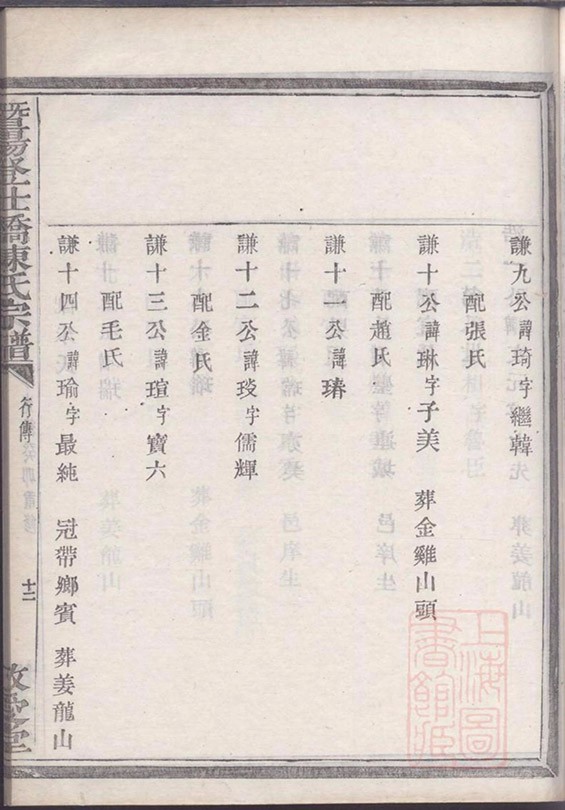 謙九公諱琦字繼韓
配張氏
謙十公諱琳字子美 葬金雞山頭
配趙氏
謙十一公諱瑃
謙十二公諱琰字儒輝
配金氏
謙十三公諱瑄字寶六
配毛氏
謙十四公諱瑜字最純 冠帶鄉賓 葬姜龍山
暨陽登仕橋陳氏宗譜 行傳 十二
上海圖書館藏